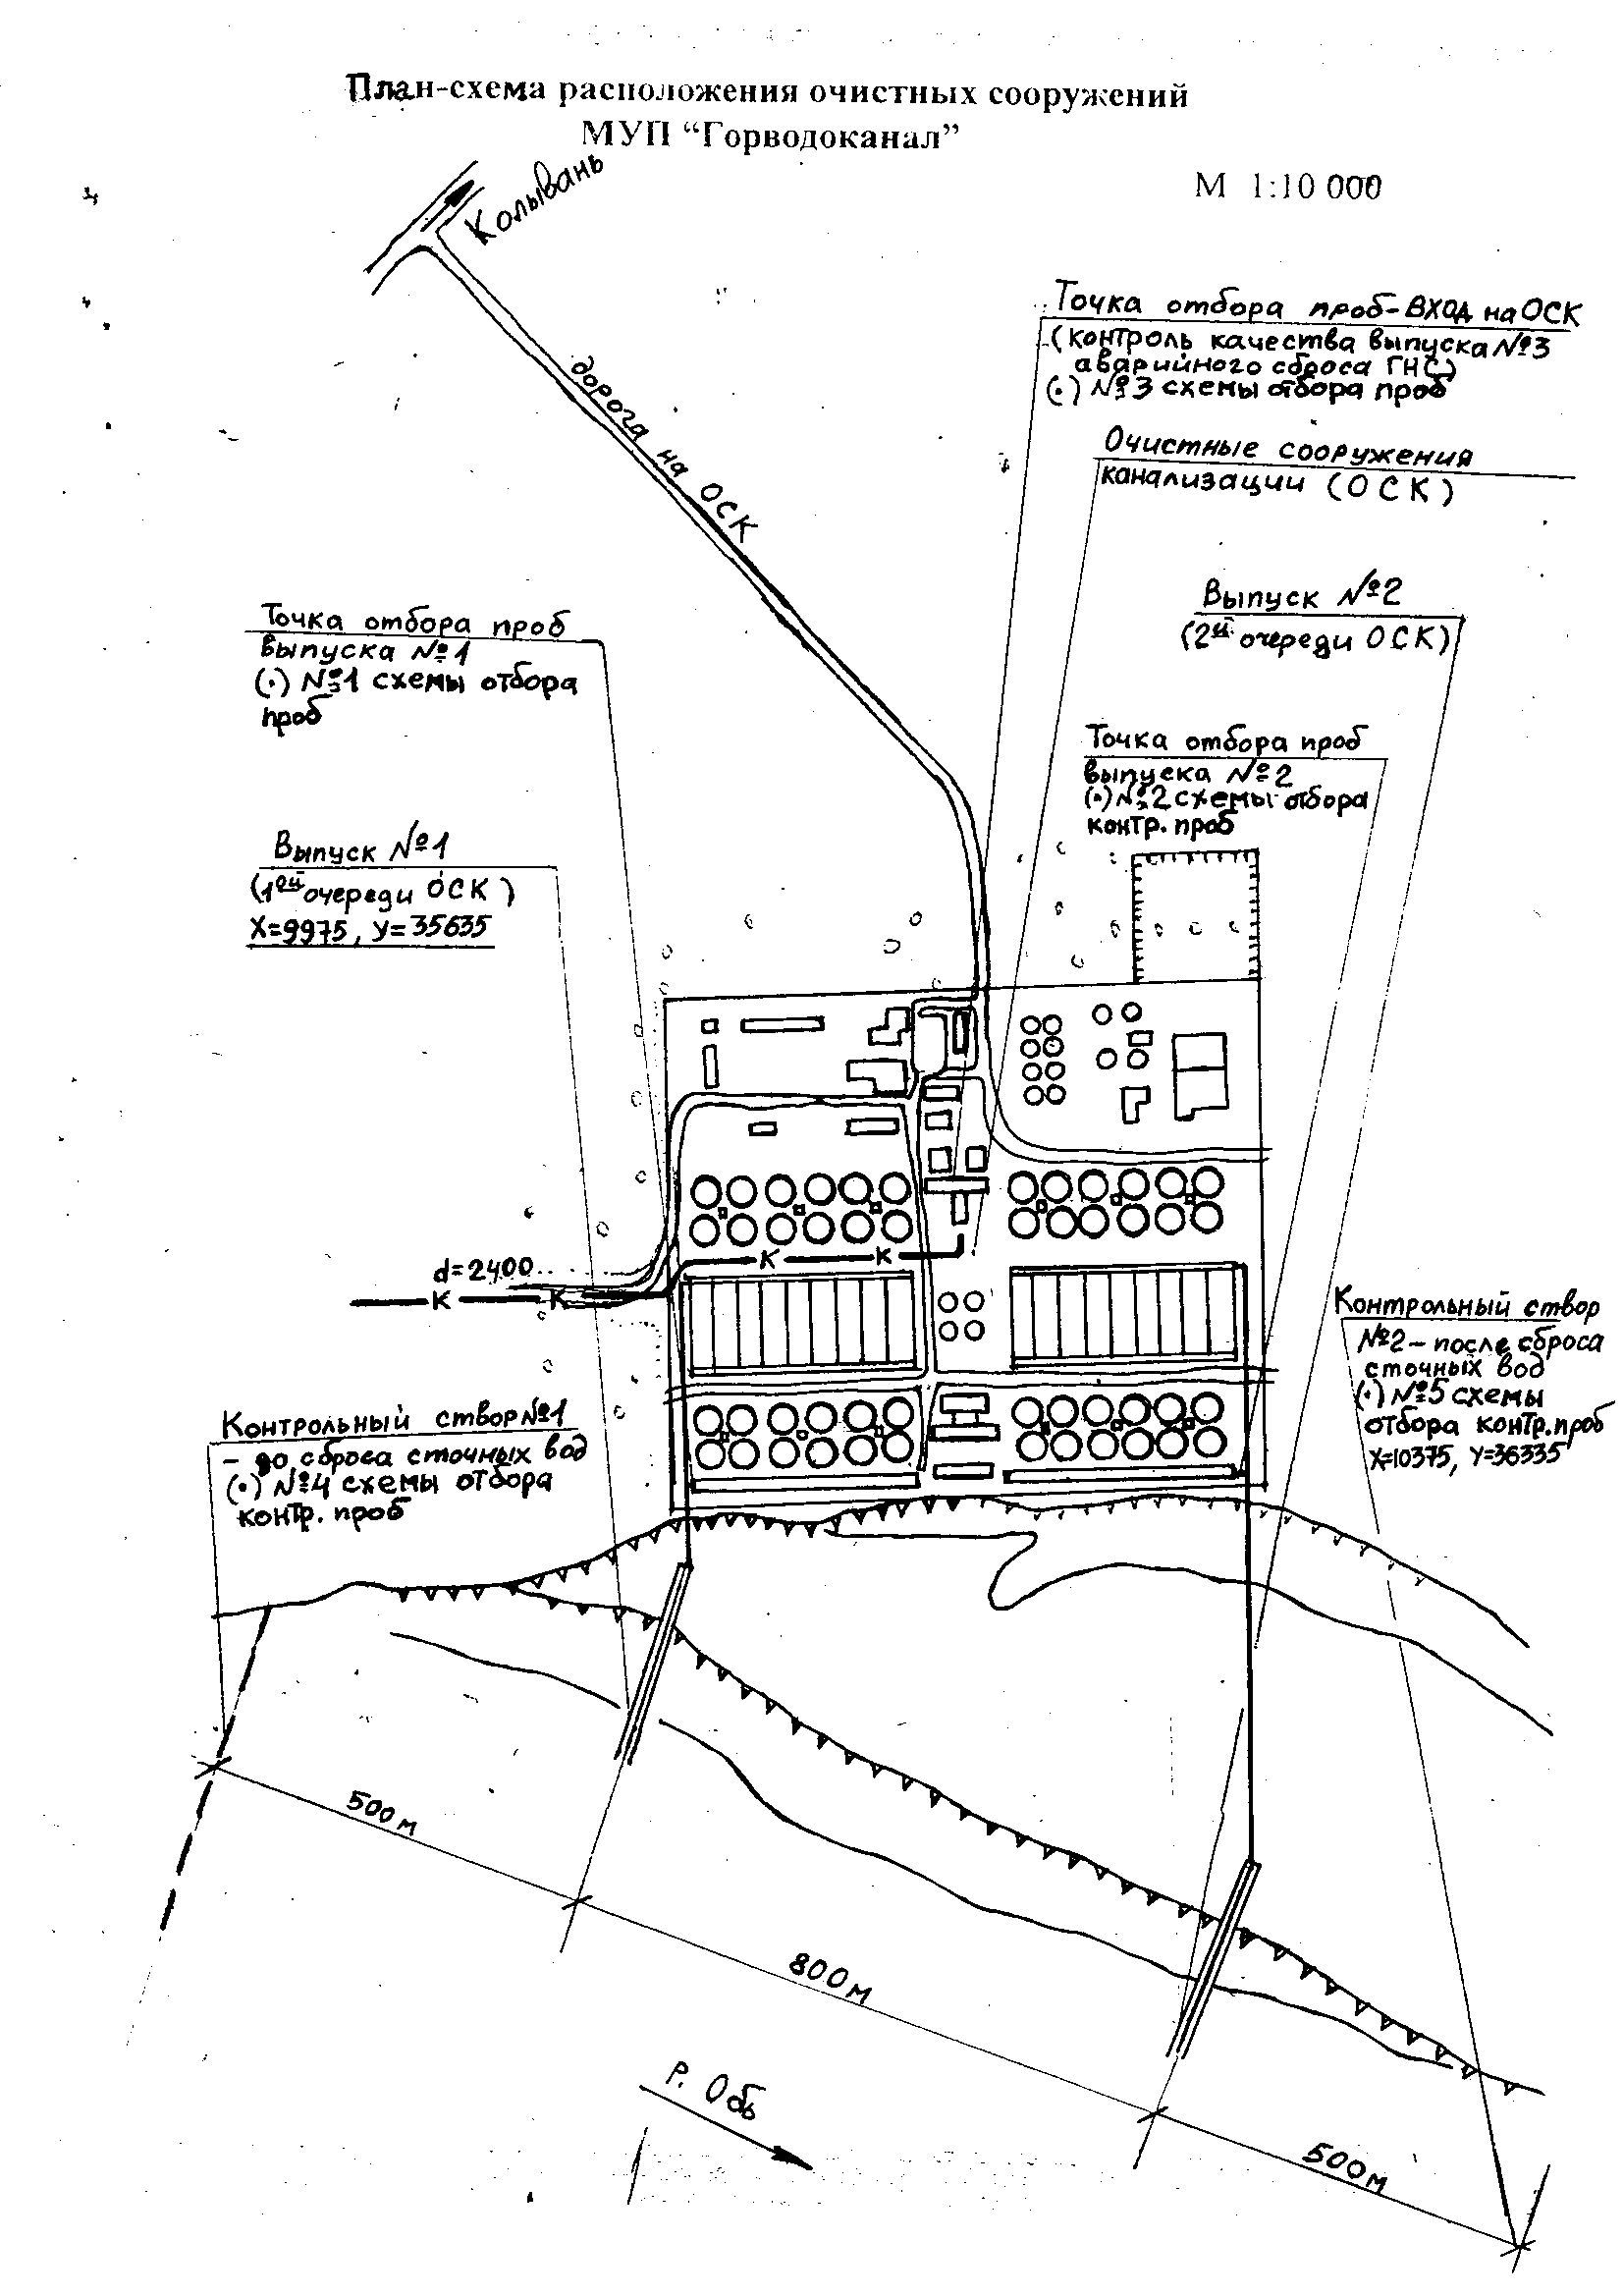 План-схема расположения очистных сооружений
МУП “Горводоканал”
М 1:10 000
Колывань
дорога на ОСК
Точка отбора проб-ВХОД на ОСК
(контроль качества выпуска №3
аварийного сброса ГНС)
(•) №3 схемы отбора проб
Очистные сооружения
канализации (ОСК)
Выпуск №2
(2ой очереди ОСК)
Точка отбора проб
выпуска №1
(•) №1 схемы отбора
проб
Точка отбора проб
выпуска №2
(•) №2 схемы отбора
контр. проб
Выпуск №1
(1ой очереди ОСК)
X=9975, У=35635
d=2400
К К К К
Контрольный створ
№2 – после сброса
сточных вод
(•) №5 схемы
отбора контр. проб
X=10375, Y=36335
Контрольный створ №1
- до сброса сточных вод
(•) №4 схемы отбора
контр. проб
500 м
800 м
500 м
р. Обь